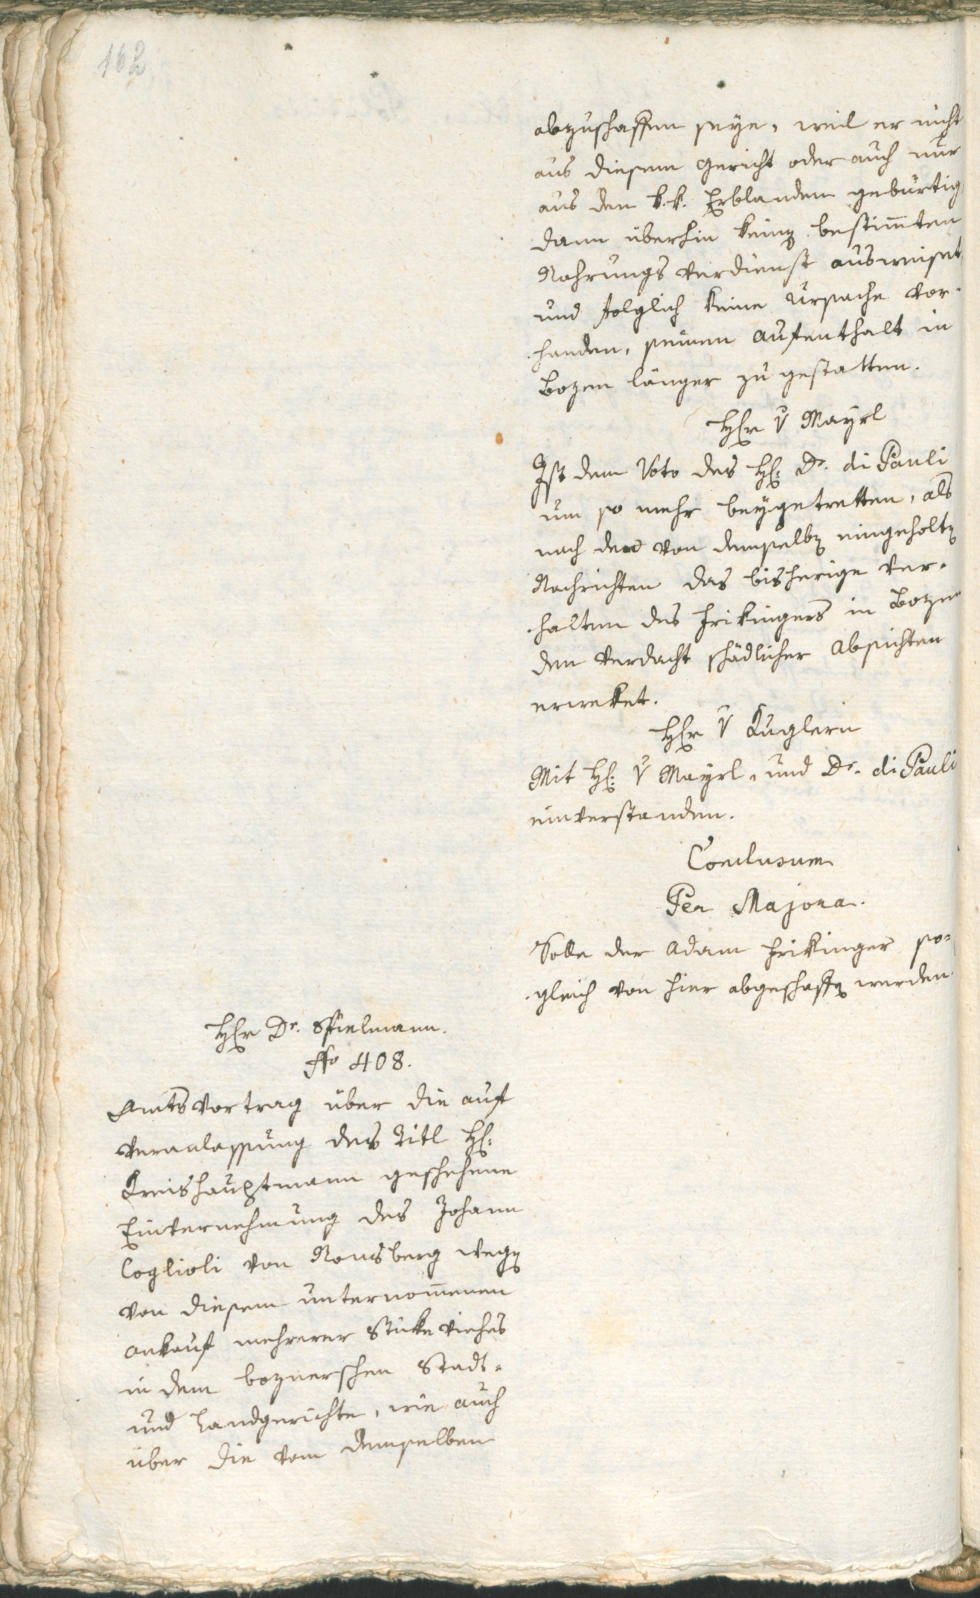 162
abzuschaffen seye, weil er nicht
aus diesem Gericht oder auch nur
aus den k. k. Erblanden gebürtig
dann überhin keinen bestim̅ten
Nahrungs Verdienst ausweiset
und folglich keine Ursache vor-
handen, seinen Aufenthalt in
Bozen länger zu gestatten.
Herr v Mayrl
Ist dem Voto des H: Dr. di Pauli
um so mehr beygetretten, als
nach den von demselben eingeholten
Nachrichten das bisherige Ver-
halten des Frikingers in Bozen
den Verdacht schädlicher Absichten
erweket.
Herr v Kuglern
Mit H: v Mayrl, und Dr. di Pauli
einverstanden.
Conclusum
Per Majora.
Solle der Adam Frikinger so-
gleich von hier abgeschaffen werden.
Herr Dr. Spielmann.
No 408.
Amts Vortrag über die auf
Veranlassung des Titl H:
Kreishauptmann geschehene
Einvernehmung des Johann
Coglioli von Nonsberg wegen
von diesem unternom̅enen
Ankauf mehrerer Stüke Viehes
in dem boznerschen Stadt-
und Landgerichte, wie auch
über die vom demselben